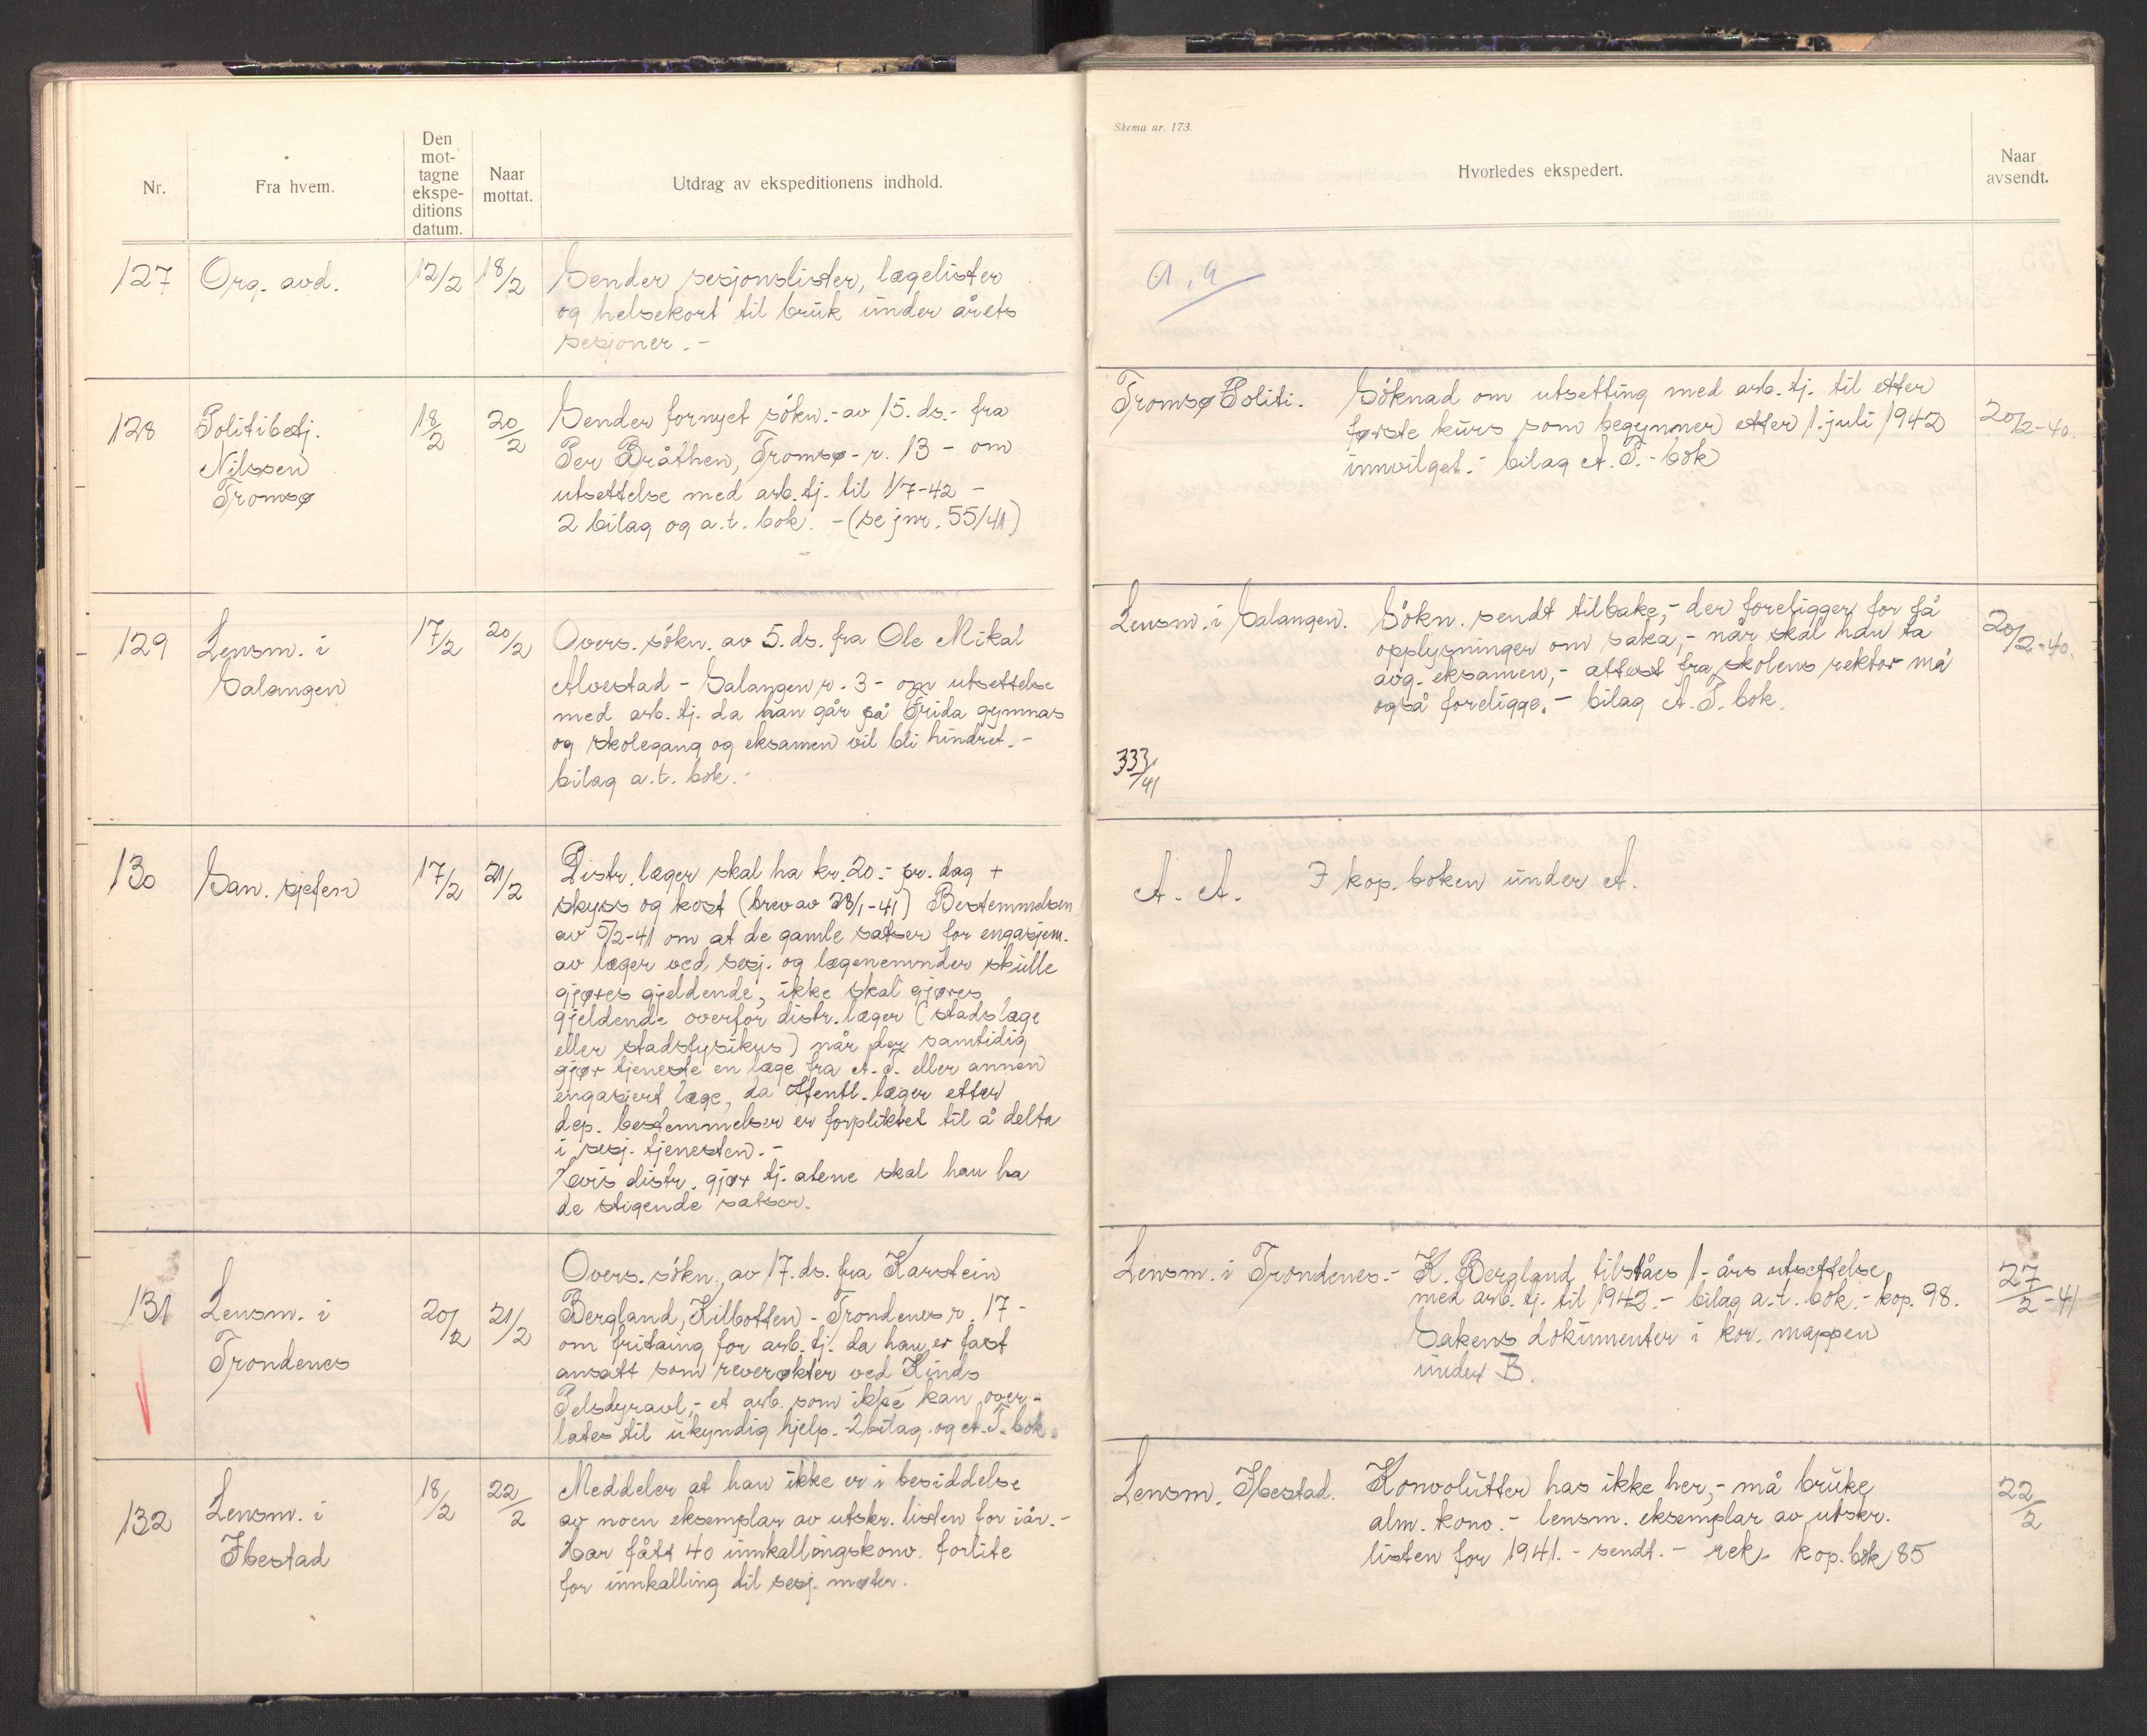 Nr.
Fra hvem.
Den
mot-
tagne
ekspe-
ditions
datum.
Naar
mottat.
Utdrag av ekspeditionens indhold.
127
Org. avd.
12/2
18/2
Sender sesjonslister, lægelister
og helsekort til bruk under årets
sesjoner. -
128
Politibetj.
Nilssen
Tromsø
18/2
20/2
Sender fornyet søkn. - av 15. ds. - fra
Per Bråthen, Tromsø - r. 13 - om
utsettelse med arb. tj. til 1/7-42 -
2 bilag og a.t. bok. - (se jnr. 55/41)
129
Lensm. i
Salangen
17/2
20/2
Overs. søkn. av 5. ds. fra Ole Mikal
Alvestad - Salangen r. 3 - om utsettelse
med arb. tj. da han går på Frida gymnas
og skolegang og eksamen vil bli hindret. -
bilag a.t. bok. -
130
San. sjefen
17/2
21/2
Distr. læger skal ha kr. 20.- pr. dag +
skyss og kost (brev av 28/1-41) Bestemmelsen
av 5/2-41 om at de gamle satser for engasjem.
av læger ved sesj. og lægenemnder skulle
gjøres gjeldende, ikke skal gjøres
gjeldende overfor distr. læger (stadslæge
eller stadsfysikus) når der samtidig
gjør tjeneste en læge fra A.T. eller annen
engasjert læge, da offentl. læger etter
dep. bestemmelser er forpliktet til å delta
i sesj. tjenesten. -
Hvis distr. gjør tj. alene skal han ha
de stigende satser.
131
Lensm. i
Trondenes
20/2
21/2
Overs. søkn. av 17. ds. fra Karstein
Bergland, Kilbotten - Trondenes r. 17 -
om fritaing for arb. tj. da han er fast
ansatt som reverøkter ved Kinds
Pelsdyravl, - et arb. som ikke kan over-
lates til ukyndig hjelp. - 2 bilag. og A.T. bok.
132
Lensm. i
Ibestad
18/2
22/2
Meddeler at han ikke er i besiddelse
av noen eksemplar av utskr. listen for iår. -
Har fått 40 innkallingskonv. forlite
for innkalling til sesj. møter.
Skema nr. 173.
Hvorledes ekspedert.
Naar
avsendt.
a, a
Tromsø Politi.
Søknad om utsetting med arb. tj. til etter
første kurs som begynner etter 1. juli 1942
innvilget. - bilag A.T. - bok
20/2-40.
Lensm. i Salangen.
Søkn. sendt tilbake, - der foreligger for få
opplysninger om saka, - når skal han ta
avg. eksamen, - attest fra skolens rektor må
også foreligge. - bilag A.T. bok.
20/2-40.
333/41
A. A.
I kop. boken under A.
Lensm. i Trondenes. -
K. Bergland tilståes 1 - års utsettelse
med arb. tj. til 1942. - bilag a.t. bok. - kop. 98.
Sakens dokumenter i kor. mappen
under B.
27/2-41
Lensm. Ibestad.
Konvolutter has ikke her, - må bruke
alm. konv. - lensm. eksemplar av utskr.
listen for 1941. - sendt. - rek. kop. bok 85
22/2